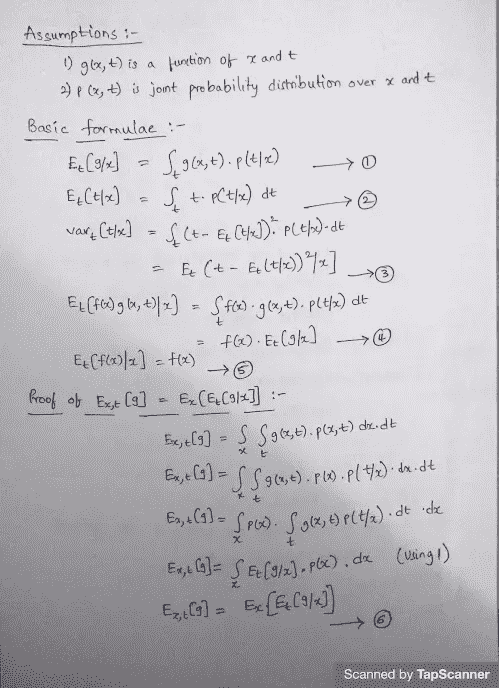 Assumptions :-
1) g(x,t) is a function of x and t
2) p (x,t) is joint probability distribution over x and t
Basic formulae :-
Et[g/x] = ∫t g(x,t). p(t|x) → ①
Et(t|x] = ∫t t. p(t/x) dt → ②
vart(t|x] = ∫t (t- Et(t/x])². P(t/x).dt
= Et (t - Et(t/x))²/x] → ③
Et[f(x)g(x,t)|x] = ∫t f(x). g(x,t). p(t/x) dt
= f(x). Et[g/x] → ④
Et[f(x)|x] = f(x) → ⑤
Proof of Ex,t [g] = Ex[Et[g|x]] :-
Ex,t[g] = ∫x ∫t g(x,t). p(x,t) dx.dt
Ex,t[g] = ∫x ∫t g(x,t). p(x). p(t/x). dx.dt
Ex,t[g] = ∫x p(x). ∫t g(x,t) p(t/x). dt .dx
Ex,t[g] = ∫x Et[g/x]. p(x). dx (using 1)
Ex,t[g] = Ex{Et[g/x]} → ⑥
Scanned by TapScanner